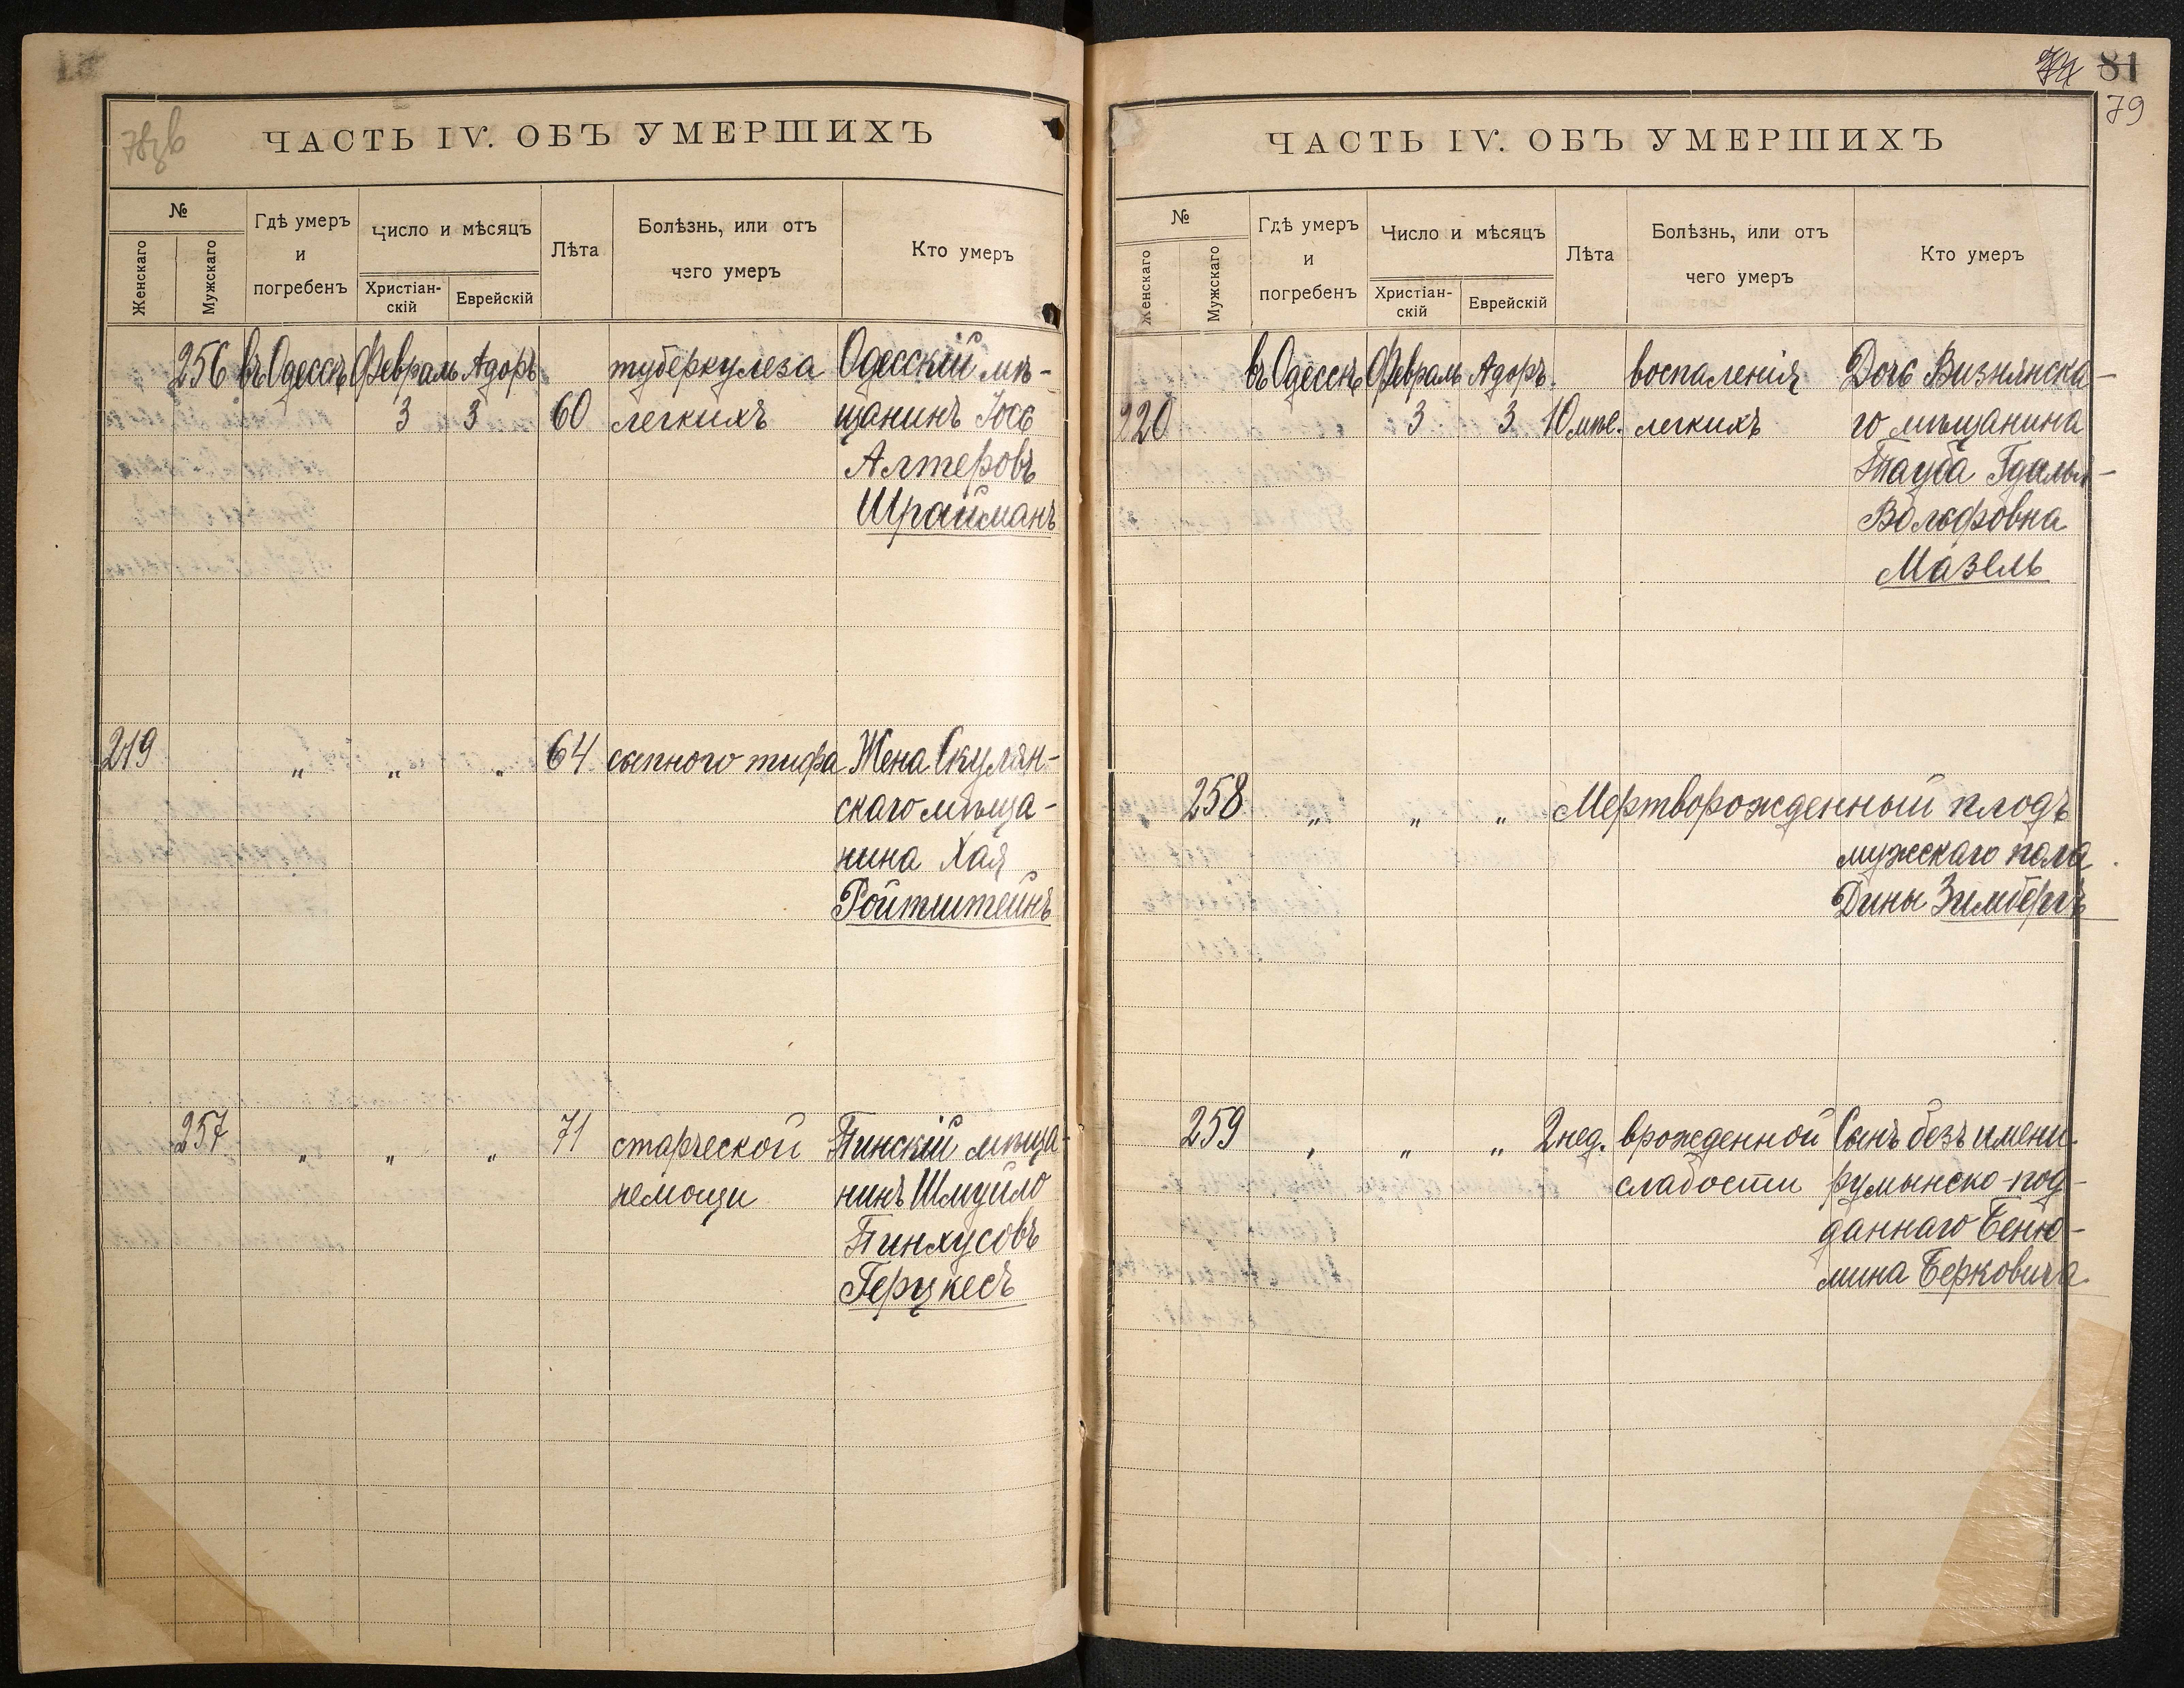 78зв
ЧАСТЬ IV. ОБЪ УМЕРШИХЪ
№
Женскаго
Мужскаго
Гдѣ умеръ
и
погребенъ
Число и мѣсяцъ
Христіан-
скій
Еврейскій
Лѣта
Болѣзнь, или отъ
чего умеръ
Кто умеръ
256 въ Одессѣ Февраль Адоръ туберкулеза Одесскій мѣ-
3 3 60 легкихъ щанинъ Іось
Алтеровъ
Шрайманъ
219 " " " 64 сыпного тифа Жена Скулян-
скаго мѣща-
нина Хая
Ройтштейнъ
257 " " " 71 старческой Пинскій мѣща-
немощи нинъ Шмуйло
Пинхусовъ
Герцкесъ
81
79
ЧАСТЬ IV. ОБЪ УМЕРШИХЪ
№
Женскаго
Мужскаго
Гдѣ умеръ
и
погребенъ
Число и мѣсяцъ
Христіан-
скій
Еврейскій
Лѣта
Болѣзнь, или отъ
чего умеръ
Кто умеръ
въ Одессѣ Февраль Адоръ. воспаленія Дочь Визнянска-
220 3 3 10 мѣс. легкихъ го мѣщанина
Тауба Гдалья-
Вольфовна
Мазель
258 " " " Мертворожденный плодъ
мужскаго пола
Дины Зимбергъ
259 " " " 2 нед. врожденной Сынъ безъ имени
слабости румынско-под-
даннаго Беню-
мина Берковича